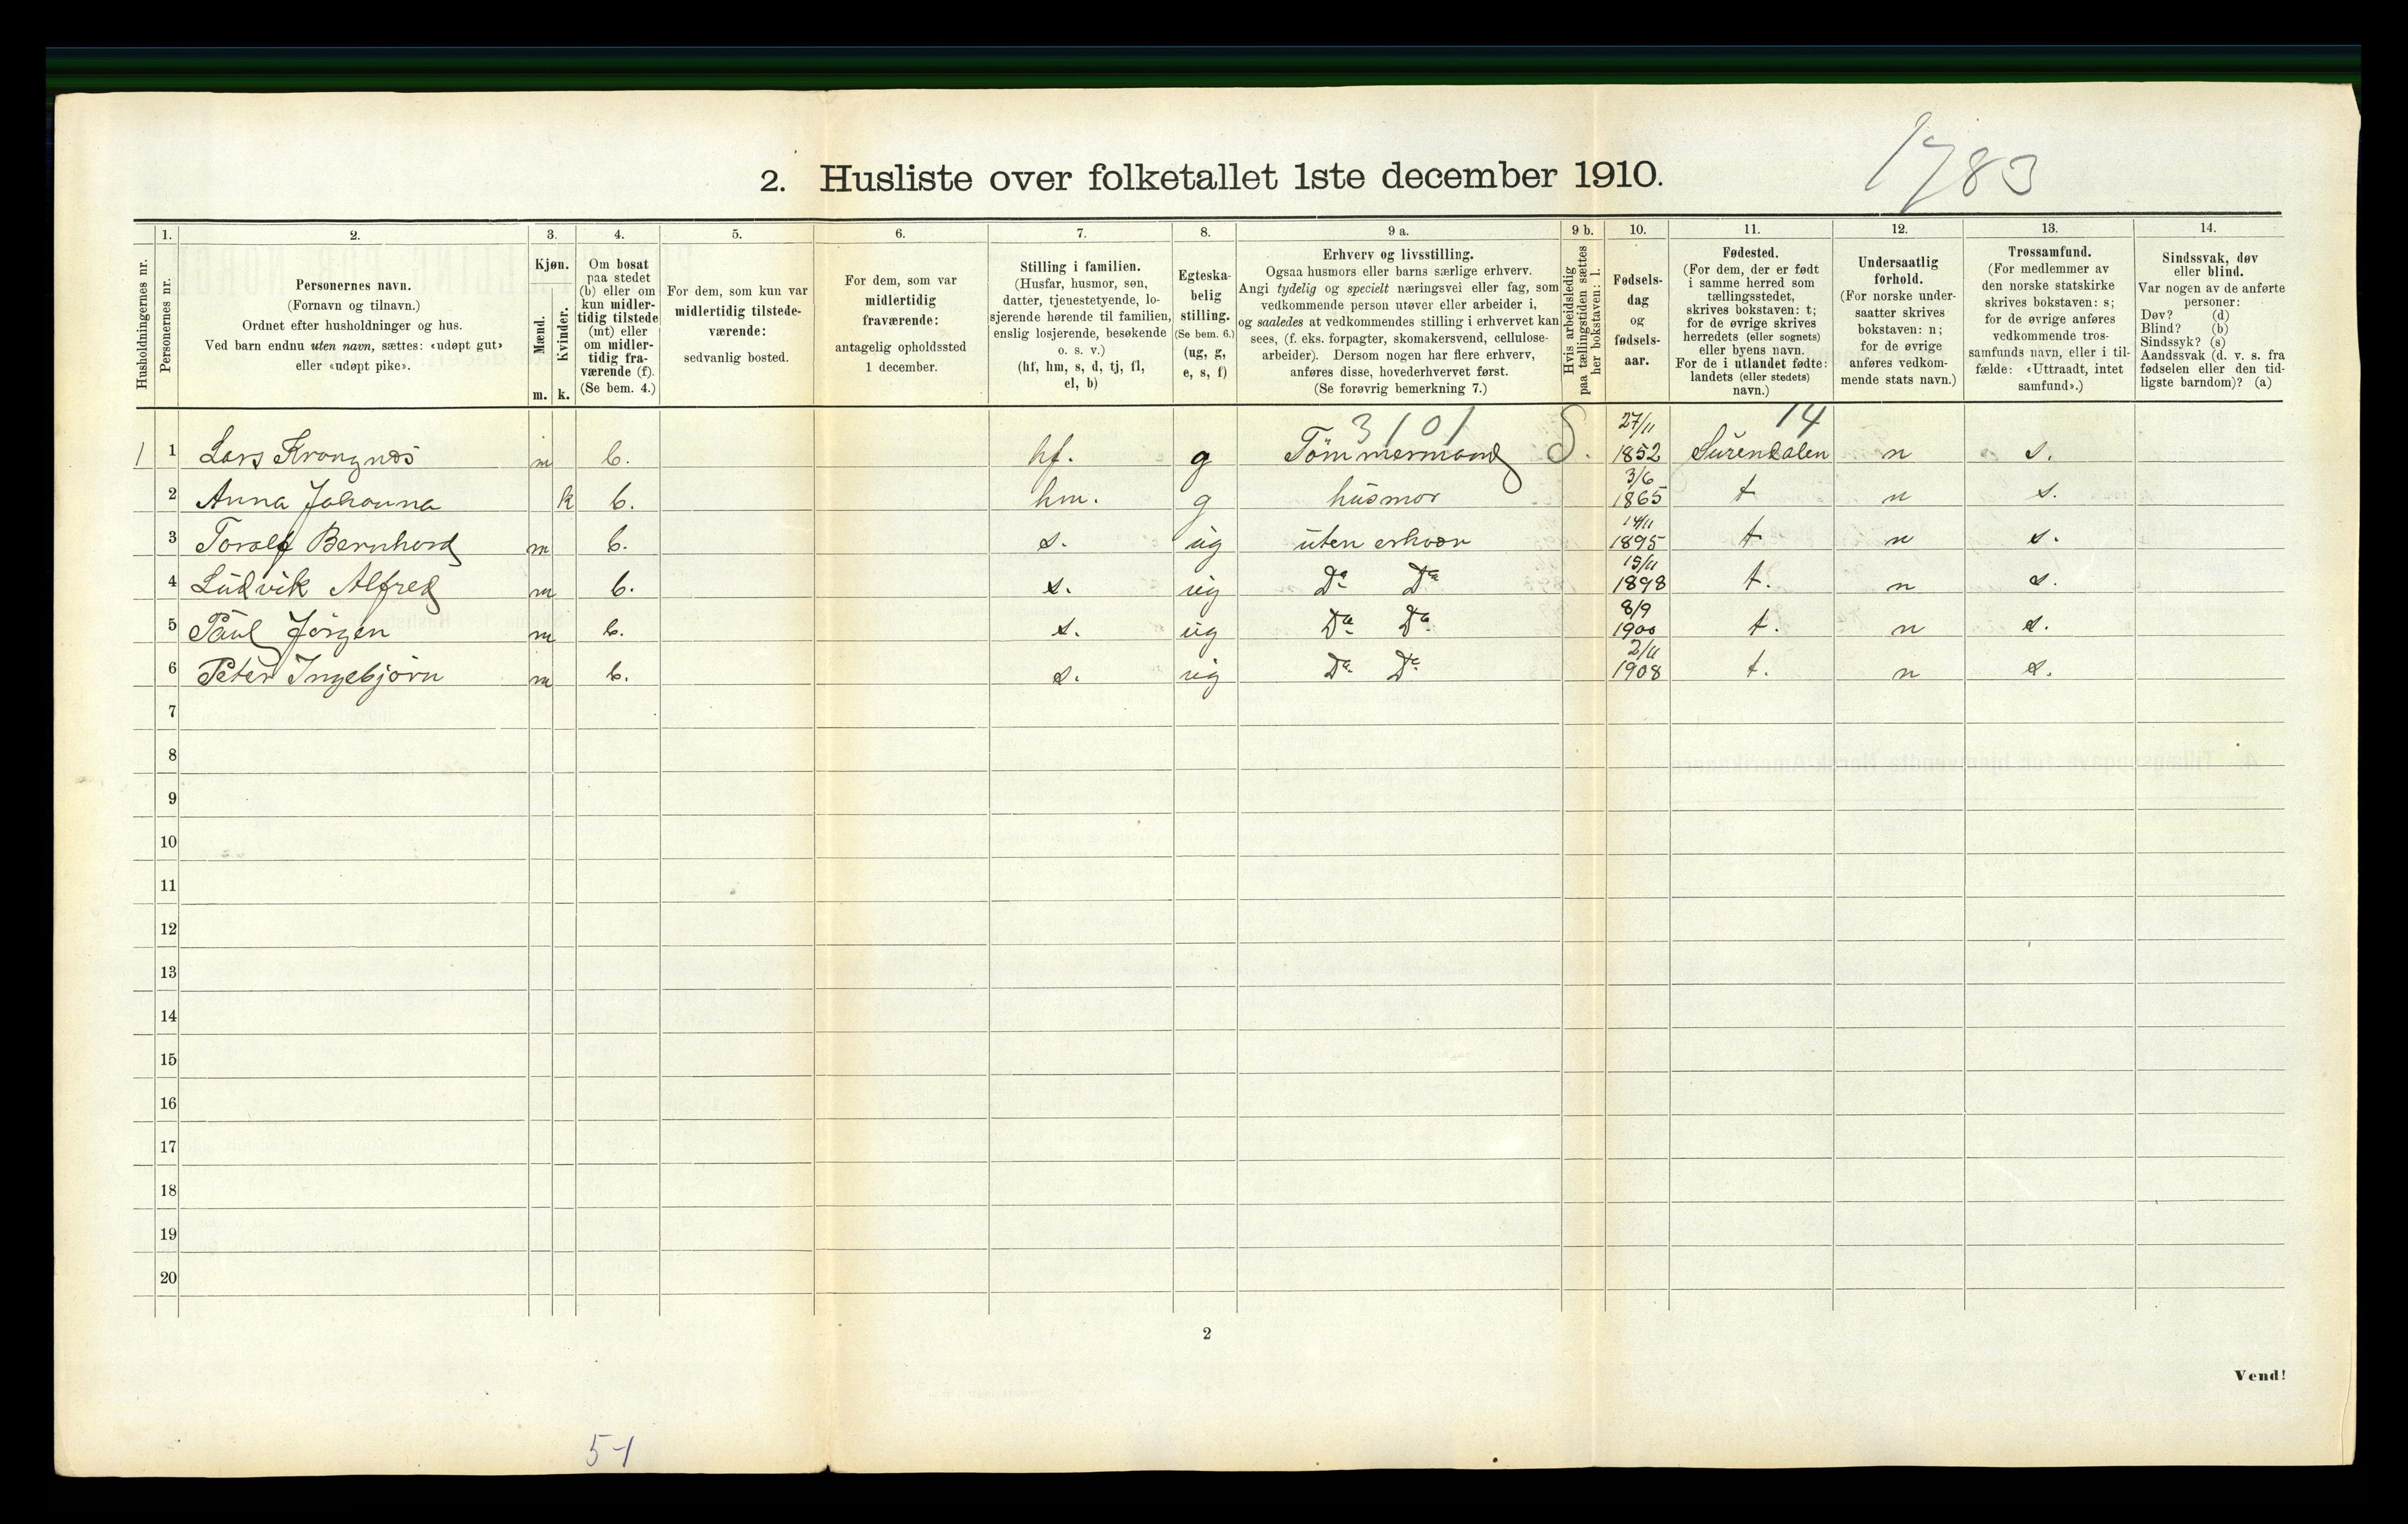 1783
2. Husliste over folketallet 1ste december 1910.
Husholdningernes nr.
1.
Personernes nr.
2.
Personernes navn.
(Fornavn og tilnavn.)
Ordnet efter husholdninger og hus.
Ved barn endnu uten navn, sættes: «udøpt gut»
eller «udøpt pike».
3.
Kjøn.
Mænd.
Kvinder.
m. k.
4.
Om bosat
paa stedet
(b) eller om
kun midler-
tidig tilstede
(mt) eller
om midler-
tidig fra-
værende (f).
(Se bem. 4.)
5.
For dem, som kun var
midlertidig tilstede-
værende:
sedvanlig bosted.
6.
For dem, som var
midlertidig
fraværende:
antagelig opholdssted
1 december.
7.
Stilling i familien.
(Husfar, husmor, søn,
datter, tjenestetyende, lo-
sjerende hørende til familien,
enslig losjerende, besøkende
o. s. v.)
(hf, hm, s, d, tj, fl,
el, b)
8.
Egteska-
belig
stilling.
(Se bem. 6.)
(ug, g,
e, s, f)
9 a.
Erhverv og livsstilling.
Ogsaa husmors eller barns særlige erhverv.
Angi tydelig og specielt næringsvei eller fag, som
vedkommende person utøver eller arbeider i,
og saaledes at vedkommendes stilling i erhvervet kan
sees, (f. eks. forpagter, skomakersvend, cellulose-
arbeider). Dersom nogen har flere erhverv,
anføres disse, hovederhvervet først.
(Se forøvrig bemerkning 7.)
9 b.
Hvis arbeidsledig
paa tællingstiden sættes
her bokstaven: l.
10.
Fødsels-
dag
og
fødsels-
aar.
11.
Fødested.
(For dem, der er født
i samme herred som
tællingsstedet,
skrives bokstaven: t;
for de øvrige skrives
herredets (eller sognets)
eller byens navn.
For de i utlandet fødte:
landets (eller stedets)
navn.)
12.
Undersaatlig
forhold.
(For norske under-
saatter skrives
bokstaven: n;
for de øvrige
anføres vedkom-
mende stats navn.)
13.
Trossamfund.
(For medlemmer av
den norske statskirke
skrives bokstaven: s;
for de øvrige anføres
vedkommende tros-
samfunds navn, eller i til-
fælde: «Uttraadt, intet
samfund».)
14.
Sindssvak, døv
eller blind.
Var nogen av de anførte
personer:
Døv? (d)
Blind? (b)
Sindssyk? (s)
Aandssvak (d. v. s. fra
fødselen eller den tid-
ligste barndom)? (a)
3101 27/11 14
1 1 Lars Krangnæs m b. hf. g Tömmermand S. 1852 Surendalen n s.
3/6
2 Anna Johanna k b. hm. g husmor 1865 t n s.
14/11
3 Toralf Bernhard m b. s. ug uten erhværv 1895 t n s.
15/11
4 Ludvik Alfred m b. s. ug Do Do 1898 t. n s.
8/9
5 Paul Jörgen m b. s. ug Do Do 1900 t. n s.
2/11
6 Peter Ingebjörn m b. s. ug Do Do 1908 t. n s.
7
8
9
10
11
12
13
14
15
16
17
18
19
20
2
Vend!
51